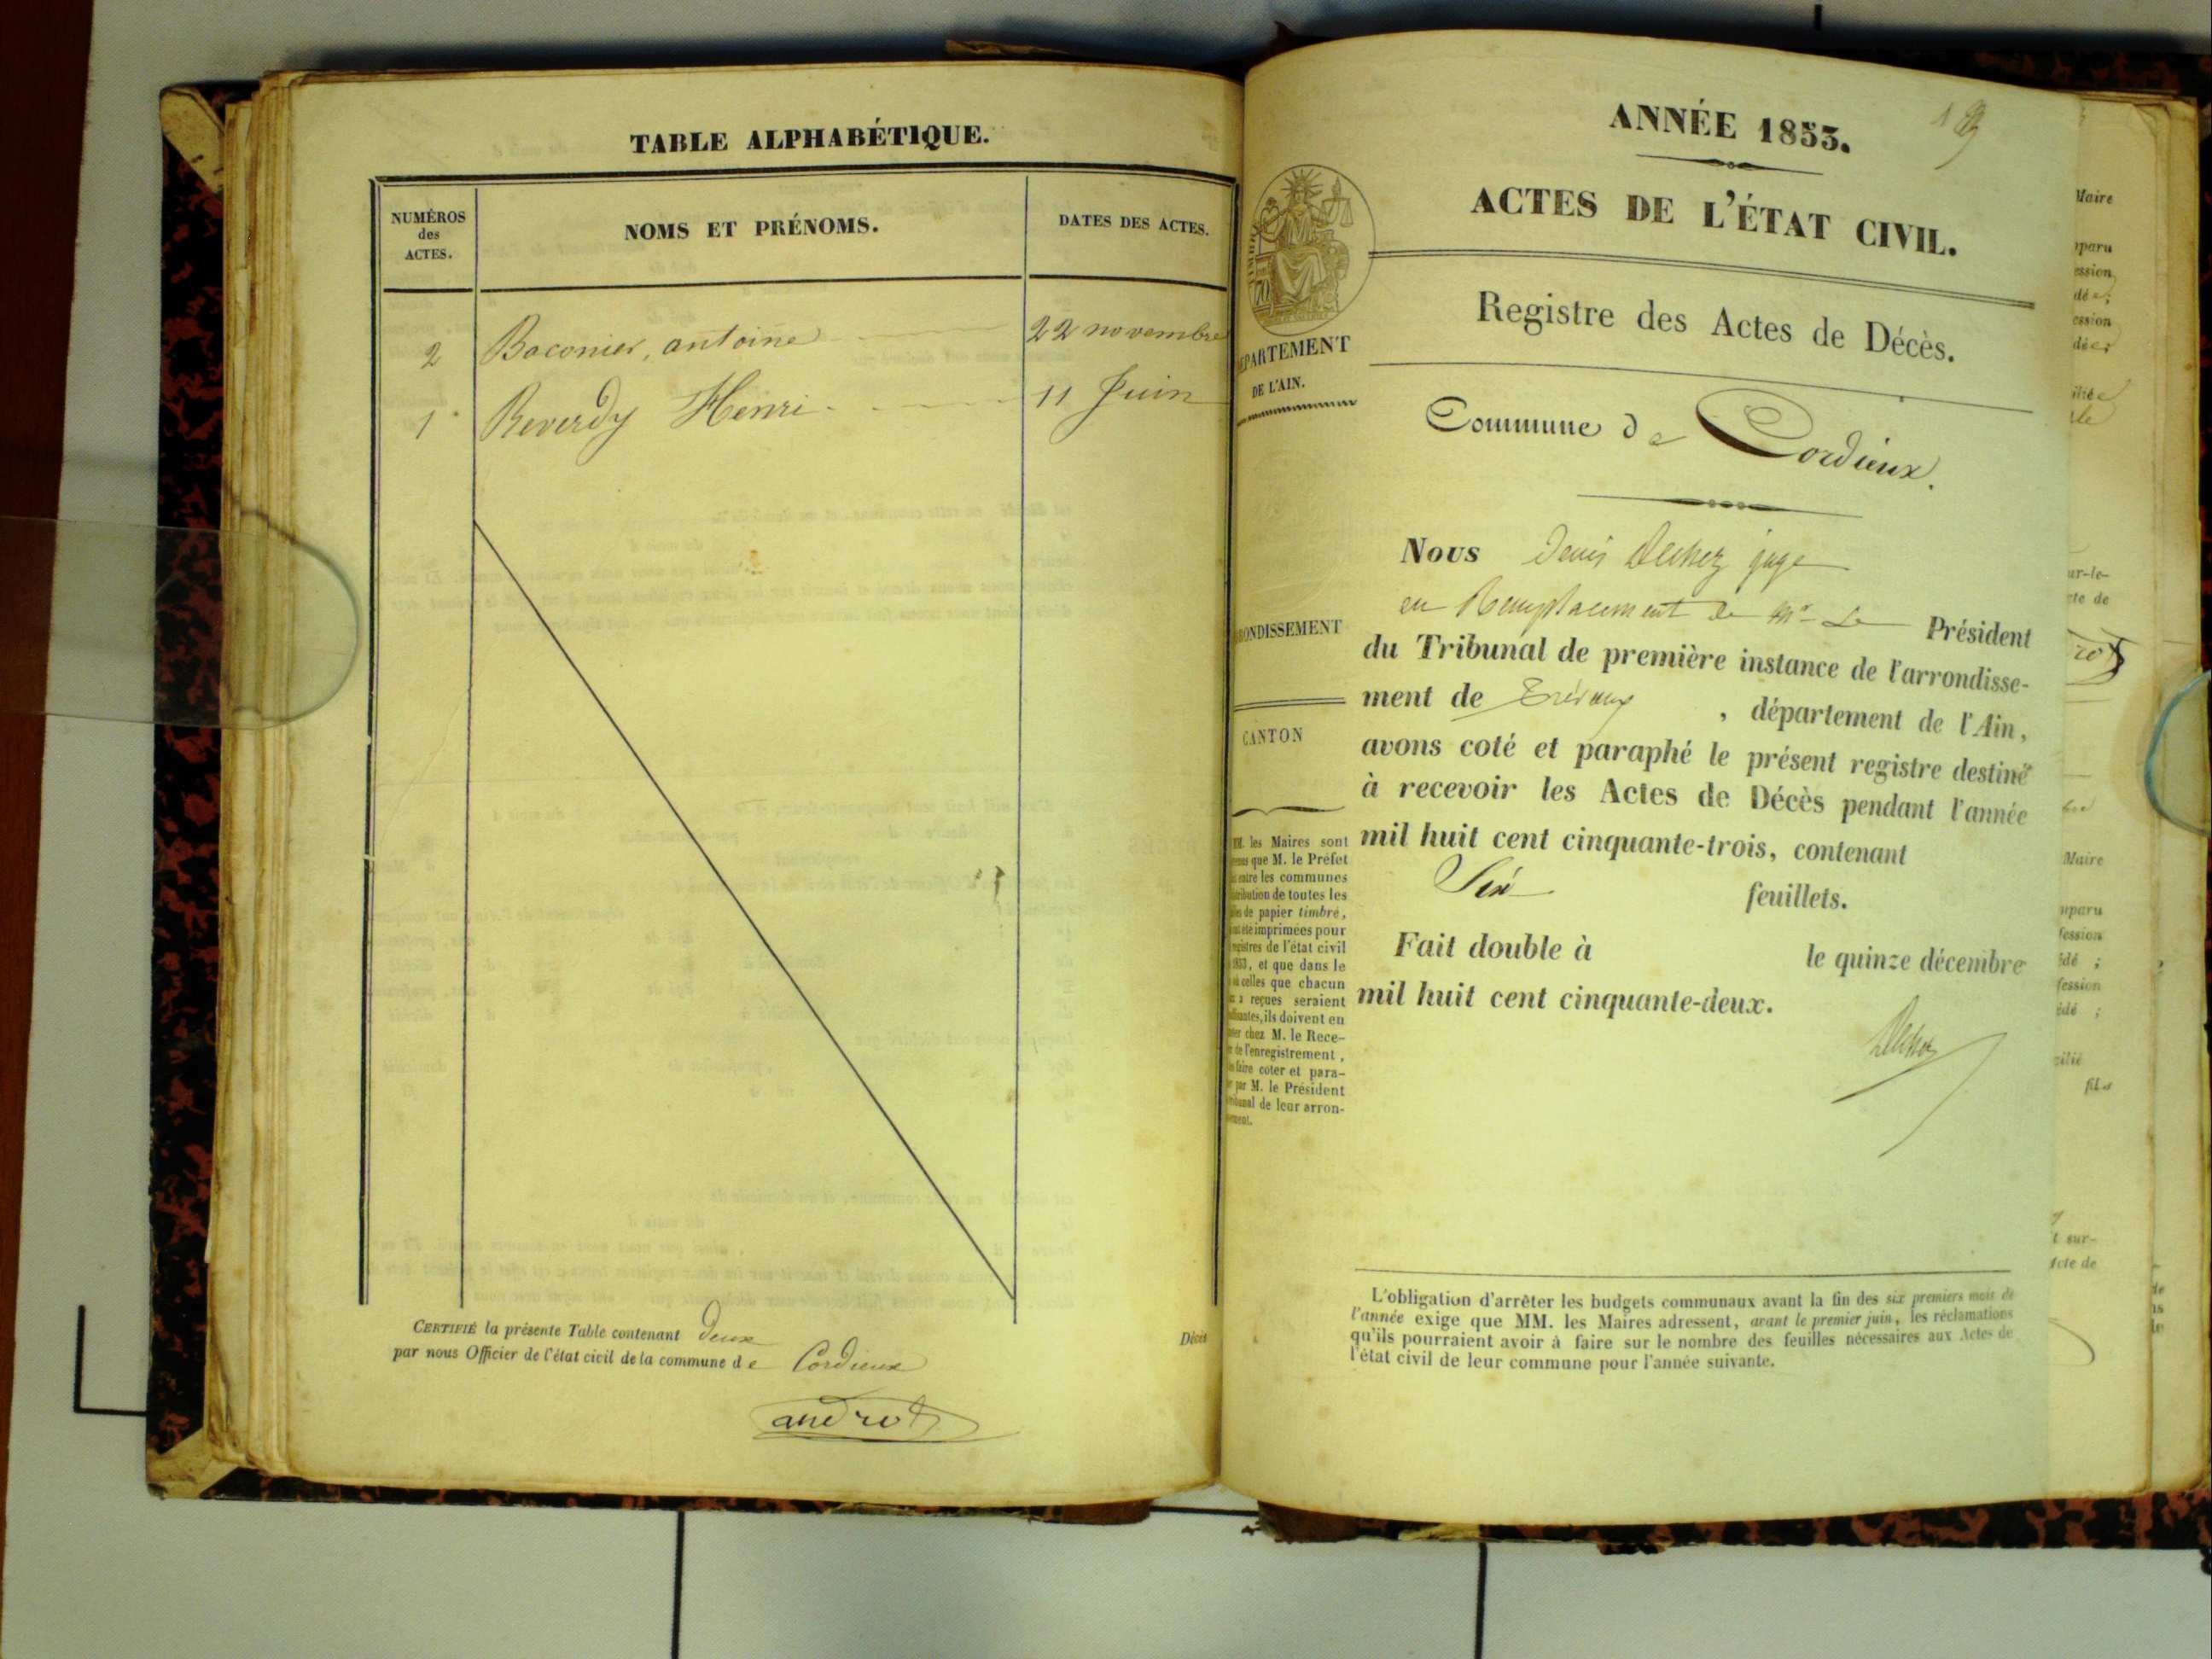 TABLE ALPHABÉTIQUE.
NUMÉROS
des
ACTES.
NOMS ET PRÉNOMS.
DATES DES ACTES.
2 Baconier, antoine 22 novembre
1 Reverdy Henri 11 Juin
CERTIFIÉ la présente Table contenant deux
par nous Officier de l'état civil de la commune de Cordieux
androt
Décès
ANNÉE 1853.
ACTES DE L'ÉTAT CIVIL.
Registre des Actes de Décès.
Commune de Cordieux.
EPARTEMENT
DE L'AIN.
ONDISSEMENT
CANTON
MM. les Maires sont
que M. le Préfet
entre les communes
de toutes les
de papier timbré,
été imprimées pour
registres de l'état civil
1853, et que dans le
celles que chacun
a reçues seraient
ils doivent en
chez M. le Rece-
de l'enregistrement,
faire coter et para-
par M. le Président
de leur arron-
Nous Denis juge
en Remplacement de Mr Le Président
du Tribunal de première instance de l'arrondisse-
ment de Trévoux, département de l'Ain,
avons coté et paraphé le présent registre destiné
à recevoir les Actes de Décès pendant l'année
mil huit cent cinquante-trois, contenant
Six feuillets.
Fait double à le quinze décembre
mil huit cent cinquante-deux.
L'obligation d'arrêter les budgets communaux avant la fin des six premiers mois de
l'année exige que MM. les Maires adressent, avant le premier juin, les réclamations
qu'ils pourraient avoir à faire sur le nombre des feuilles nécessaires aux Actes de
l'état civil de leur commune pour l'année suivante.
Maire